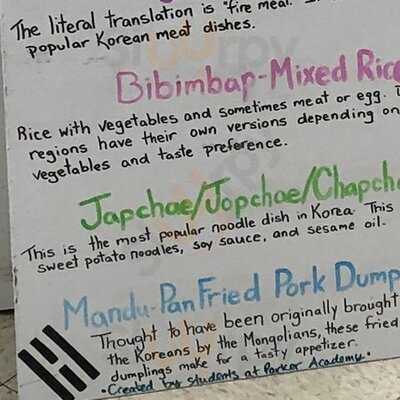 The literal translation is "fire meat."
popular Korean meat dishes.
Bibimbap-Mixed Rice
Rice with vegetables and sometimes meat or egg.
regions have their own versions depending on
vegetables and taste preference.
Japchae/Jopchae/Chapch
This is the most popular noodle dish in Korea. This
sweet potato noodles, soy sauce, and sesame oil.
Mandu-Pan Fried Pork Dump
Thought to have been originally brought
the Koreans by the Mongolians, these fried
dumplings make for a tasty appetizer.
•Created by students at Parker Academy•